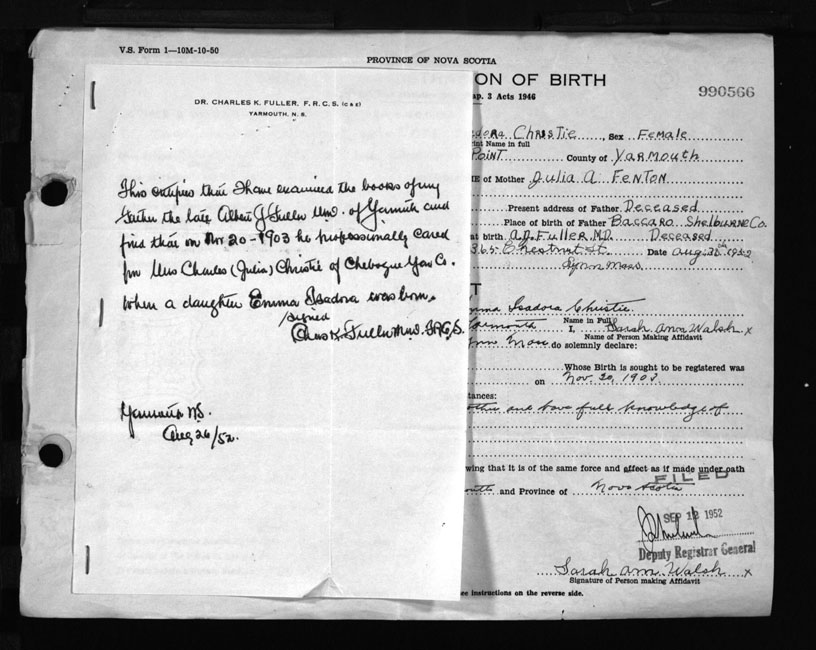 V.S. Form 1—10M-10-50
PROVINCE OF NOVA SCOTIA
ON OF BIRTH
ap. 3 Acts 1946
990566
DR. CHARLES K. FULLER, F. R. C. S. (C & E)
YARMOUTH, N. S.
This certifies that I have examined the books of my
father the late Albert J Fuller M.D. of Yarmouth and
find that on Nov 20-1903 he professionally cared
for Mrs Charles (Julia) Christie of Chebogue Yar Co.
When a daughter Emma Isadora was born.
signed
Chas K. Fuller M.D. F.R.C.S.
Yarmouth N.S.
Aug 26/52.
adora Christie, Sex Female
rint Name in full
Point County of Yarmouth
E of Mother Julia A Fenton
Present address of Father Deceased
Place of birth of Father Baccaro Shelburne Co.
at birth A.J. Fuller M.D. Deceased
365 Chestnut St. Date Aug 1952
Lynn Mass
T
mma Isadora Christie
Name in Full
Yarmouth I, Sarah Ann Walsh x
Name of Person Making Affidavit
ynn Mass do solemnly declare:
Whose Birth is sought to be registered was
on Nov. 20, 1903.
stances:
other and have full knowledge of
wing that it is of the same force and affect as if made under oath
outh and Province of Nova Scotia
FILED
SEP 12 1952
Deputy Registrar General
Sarah Ann Walsh x
Signature of Person making Affidavit
ee instructions on the reverse side.